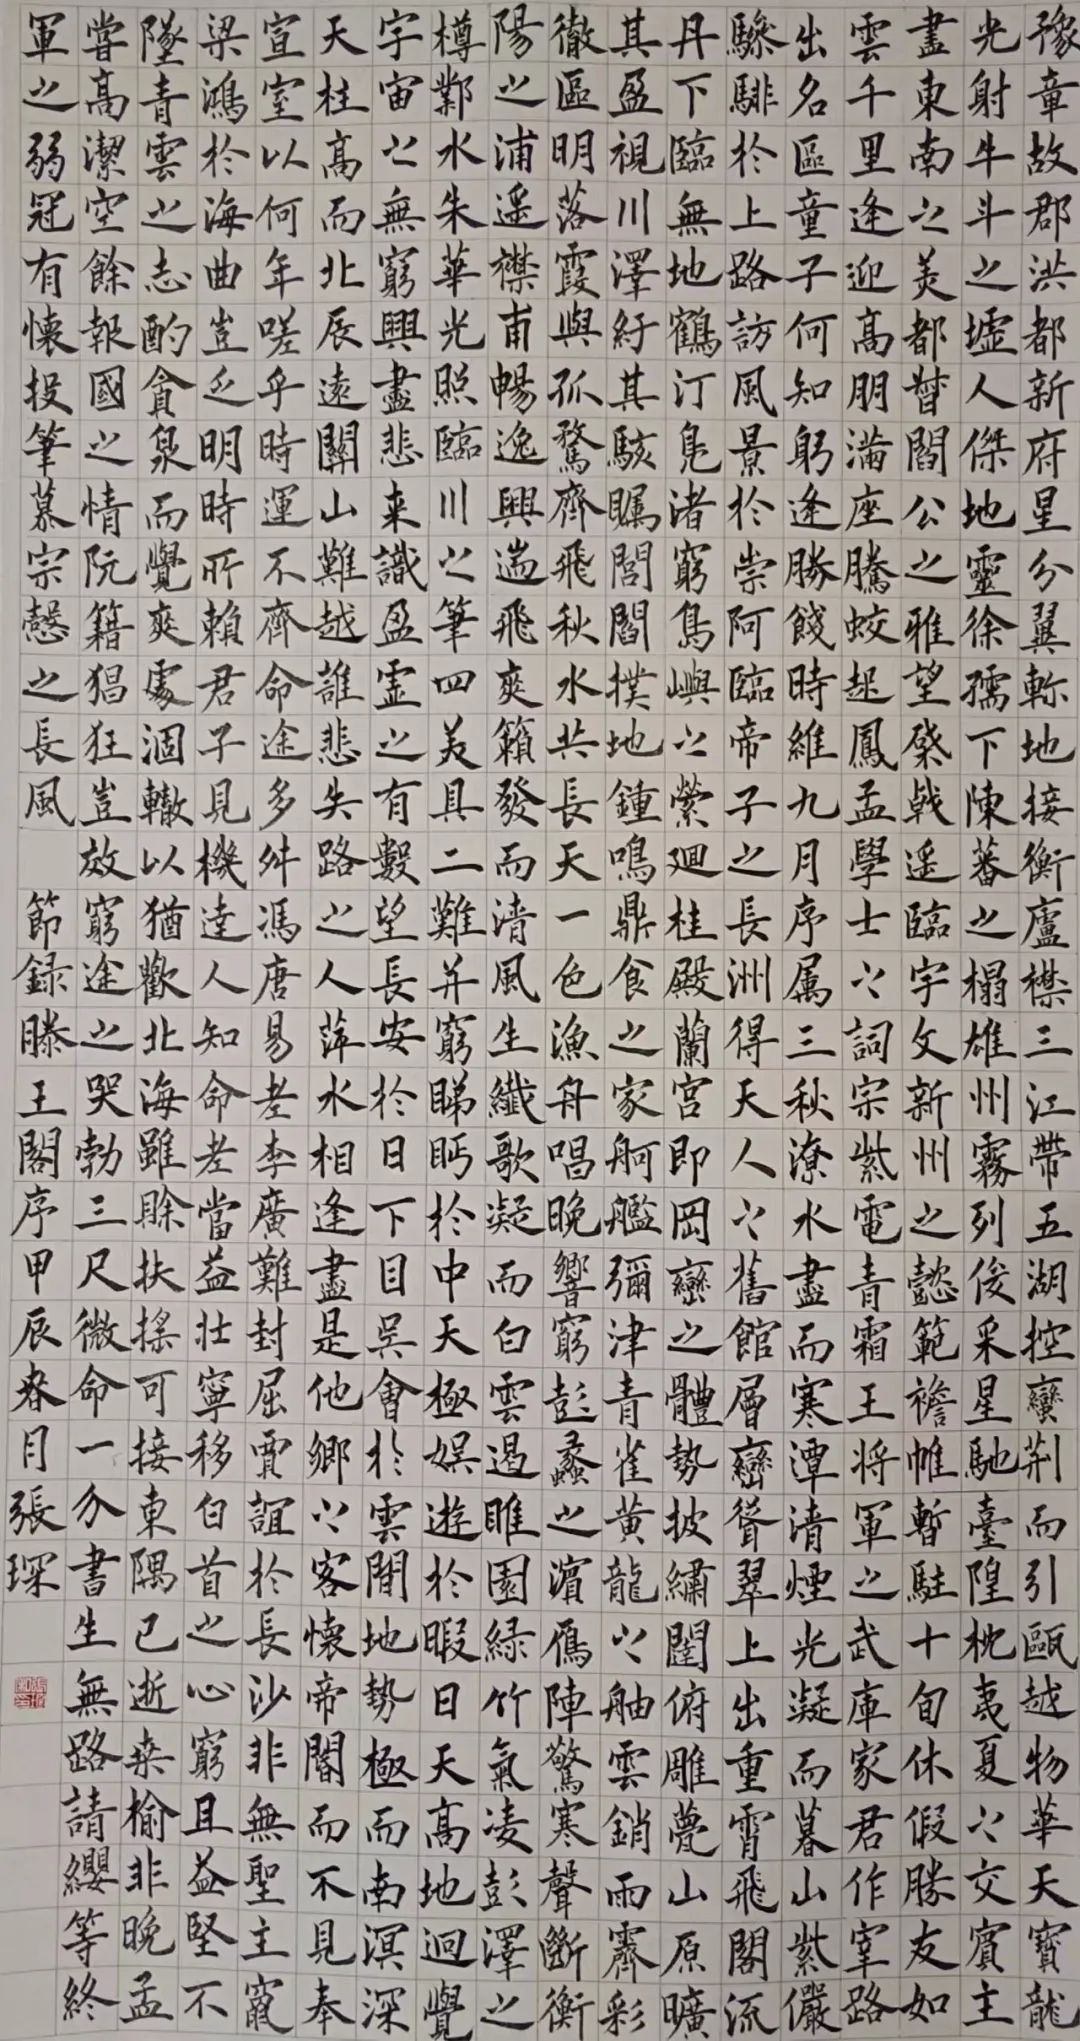 豫章故郡洪都新府星分翼軫地接衡廬襟三江帶五湖控蠻荊而引甌越物華天寶龍
光射牛斗之墟人傑地靈徐孺下陳蕃之榻雄州霧列俊采星馳臺隍枕夷夏之交賓主
盡東南之美都督閻公之雅望棨戟遥臨宇文新州之懿範襜帷暫駐十旬休假勝友如
雲千里逢迎高朋滿座騰蛟起鳳孟學士之詞宗紫電青霜王將軍之武庫家君作宰路
出名區童子何知躬逢勝餞時維九月序属三秋潦水盡而寒潭清煙光凝而暮山紫儼
驂騑於上路訪風景於崇阿臨帝子之長洲得天人之舊館層巒聳翠上出重霄飛閣流
丹下臨無地鶴汀鳧渚窮島嶼之縈迴桂殿蘭宮即岡巒之體勢披繡闥俯雕甍山原曠
其盈視川澤紆其駭矚閭閻撲地鍾鳴鼎食之家舸艦彌津青雀黄龍之舳雲銷雨霽彩
徹區明落霞與孤鶩齊飛秋水共長天一色漁舟唱晚響窮彭蠡之濱雁陣驚寒聲斷衡
陽之浦遥襟甫暢逸興遄飛爽籟發而清風生纖歌凝而白雲遏睢園緑竹氣凌彭澤之
樽鄴水朱華光照臨川之筆四美具二難并窮睇眄於中天極娱遊於暇日天高地迥覺
宇宙之無窮興盡悲来識盈虚之有數望長安於日下目吴會於雲間地勢極而南溟深
天柱高而北辰遠關山難越誰悲失路之人萍水相逢盡是他鄉之客懷帝閽而不見奉
宣室以何年嗟乎時運不齊命途多舛馮唐易老李廣難封屈賈誼於長沙非無聖主竄
梁鴻於海曲豈乏明時所賴君子見機達人知命老當益壯寧移白首之心窮且益堅不
墜青雲之志酌貪泉而覺爽處涸轍以猶歡北海雖賒扶摇可接東隅已逝桑榆非晚孟
嘗高潔空餘報國之情阮籍猖狂豈效窮途之哭勃三尺微命一介書生無路請纓等終
軍之弱冠有懷投筆慕宗愨之長風 節録滕王閣序甲辰春月張琛